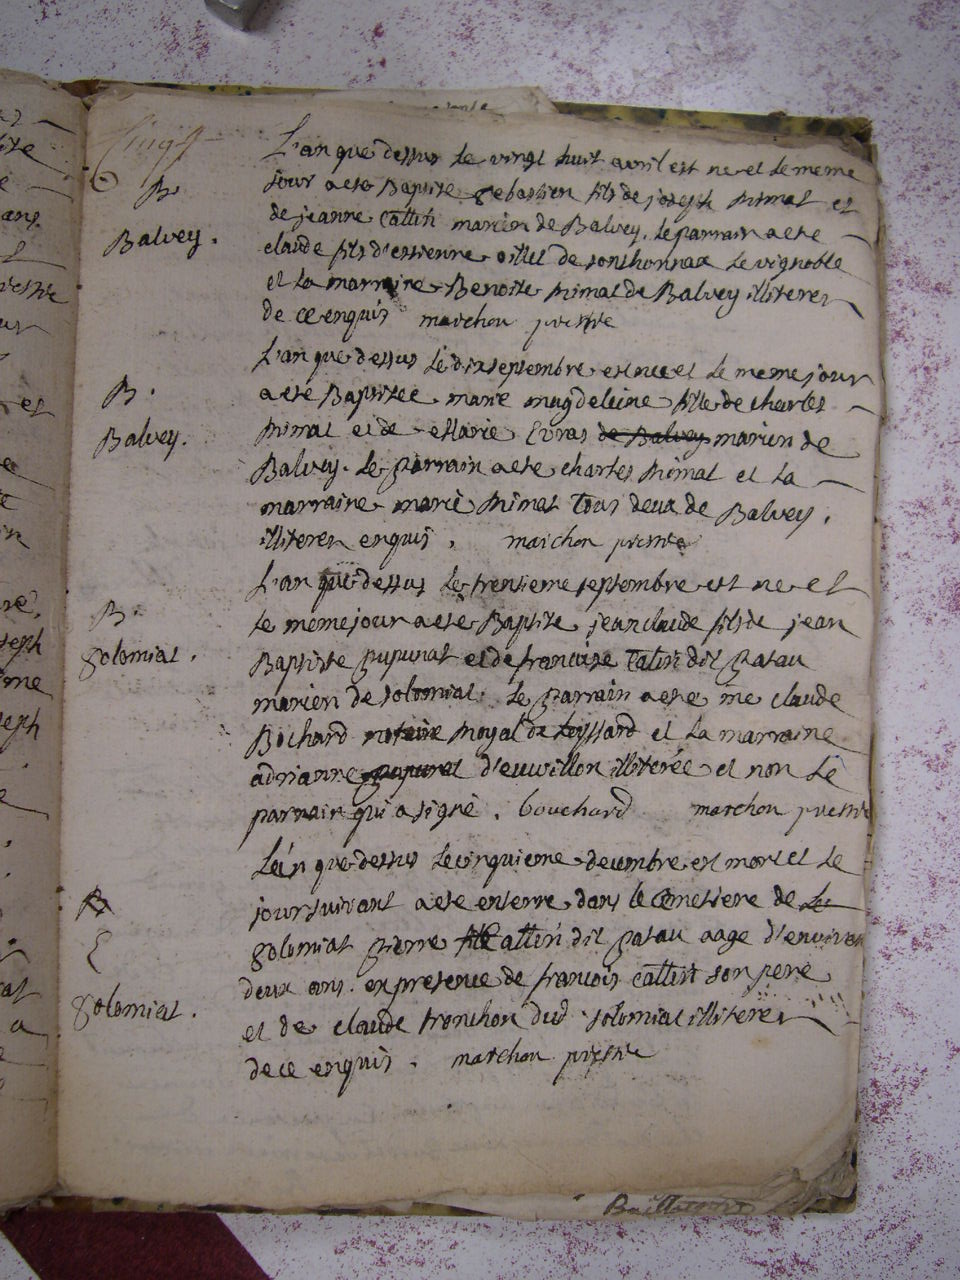 L'an que dessus le vingt huit avril est ne et le meme
B.
jour a ete Baptise sebastien fils de joseph nimat et
de jeanne Cattin mariez de Balvey. le parrain a ete
Balvey.
claude fils d'estienne oillet de sonthonnax le vignoble
et la marraine Benoite nimat de Balvey illiterez
de ce enquis marchon prestre
L'an que dessus le dix septembre est nee et le meme jour
B.
a ete Baptisee marie magdeleine fille de charles
Balvey.
nimat et de marie Evras de Balvey mariez de
Balvey. le parrain a ete charles nimat et la
marraine marie nimat tous deux de Balvey.
illiterez enquis. marchon prestre
L'an que dessus le trentieme septembre est ne et
B.
le meme jour a ete Baptise jean claude fils de jean
solomiat.
Baptiste pupunat et de francoise Catin dit patau
mariez de solomiat. le parrain a ete me claude
Bochard notaire royal de et la marraine
adrianne pupunat d'euvillon illiterée et non le
parrain qui a signé. bouchard marchon prestre
L'an que dessus le cinquieme decembre est mort et le
B
jour suivant a ete enterre dans le cemetiere de le
E
solomiat pierre fils cattin dit patau aage d'environ
deux ans. en presence de francois Cattin son pere
solomiat.
et de claude tronchon dud solomiat illiterez
de ce enquis. marchon prestre